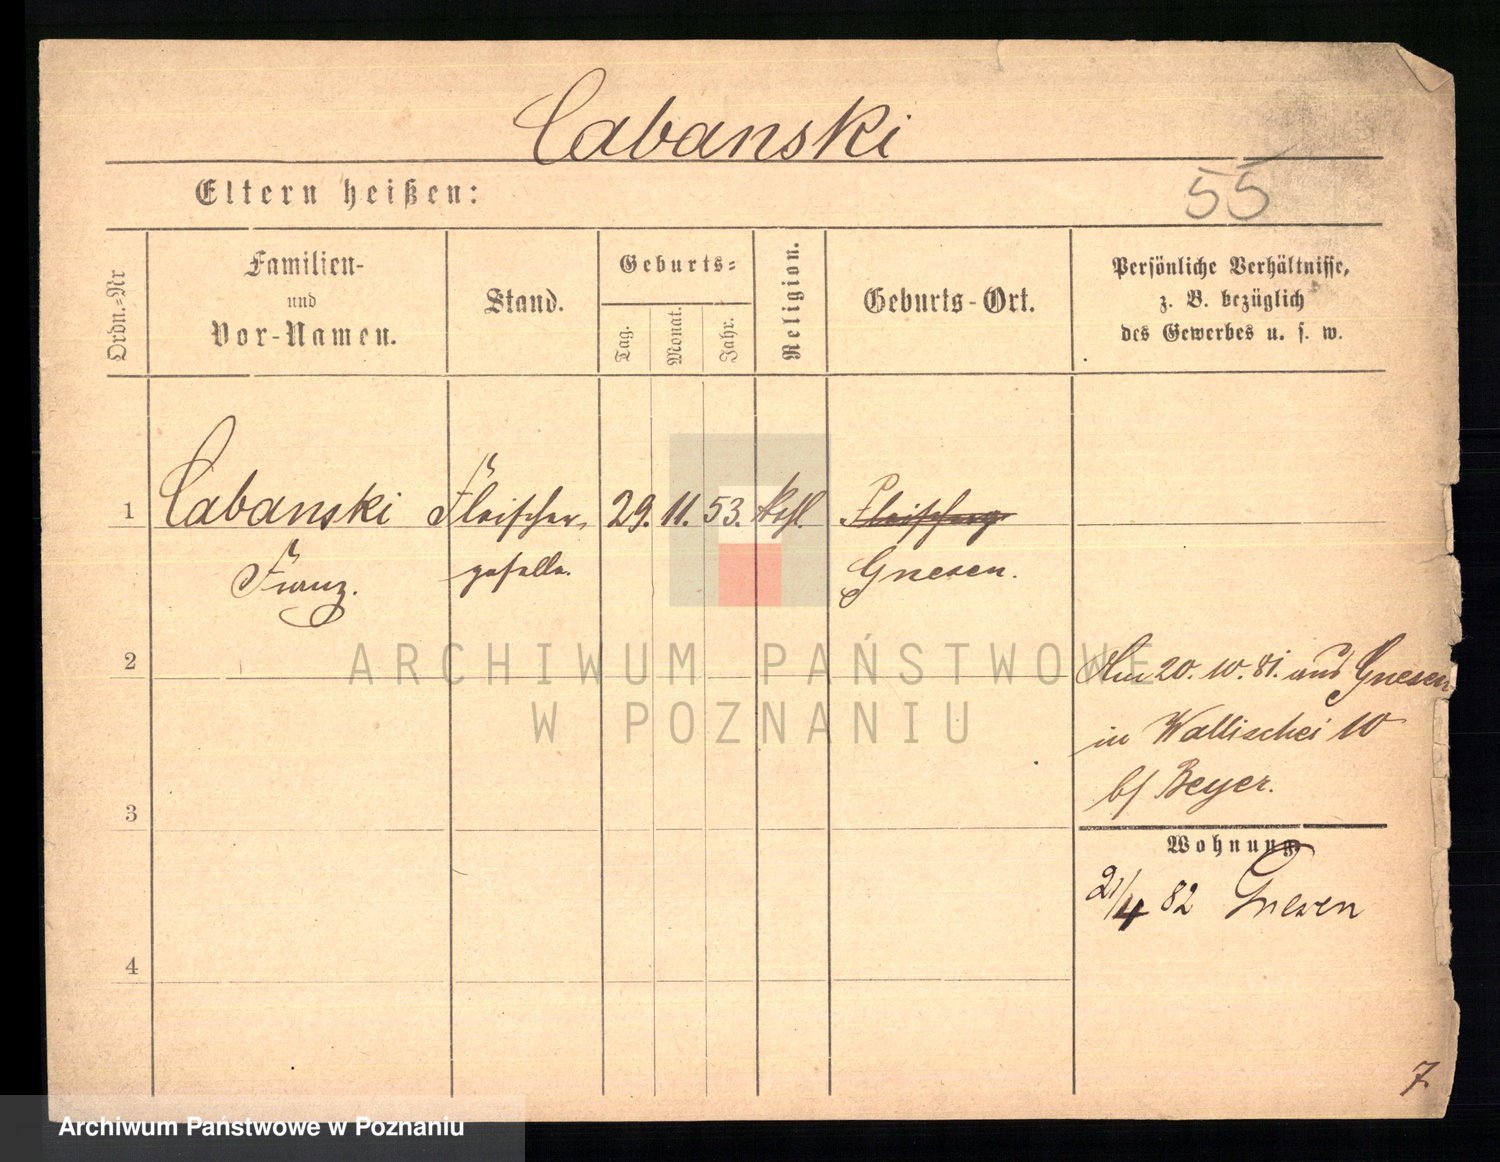 Cabanski
Eltern heißen:
55
Ordn.=Nr
Familien-
und
Vor-Namen.
Stand.
Geburts=
Tag.
Monat.
Jahr.
Religion.
Geburts-Ort.
Persönliche Verhältnisse,
z. B. bezüglich
des Gewerbes u. s. w.
1
Cabanski Fleischer- 29. 11. 53. kath. Fleischerg
Franz. geselle. Gnesen.
ARCHIWUM PAŃSTWOWE
W POZNANIU
2
Am 20. 10. 81. aus Gnesen
in Wallischei 10
b/ Beyer.
3
Wohnung
21/4 82 Gnesen
4
7.
Archiwum Państwowe w Poznaniu